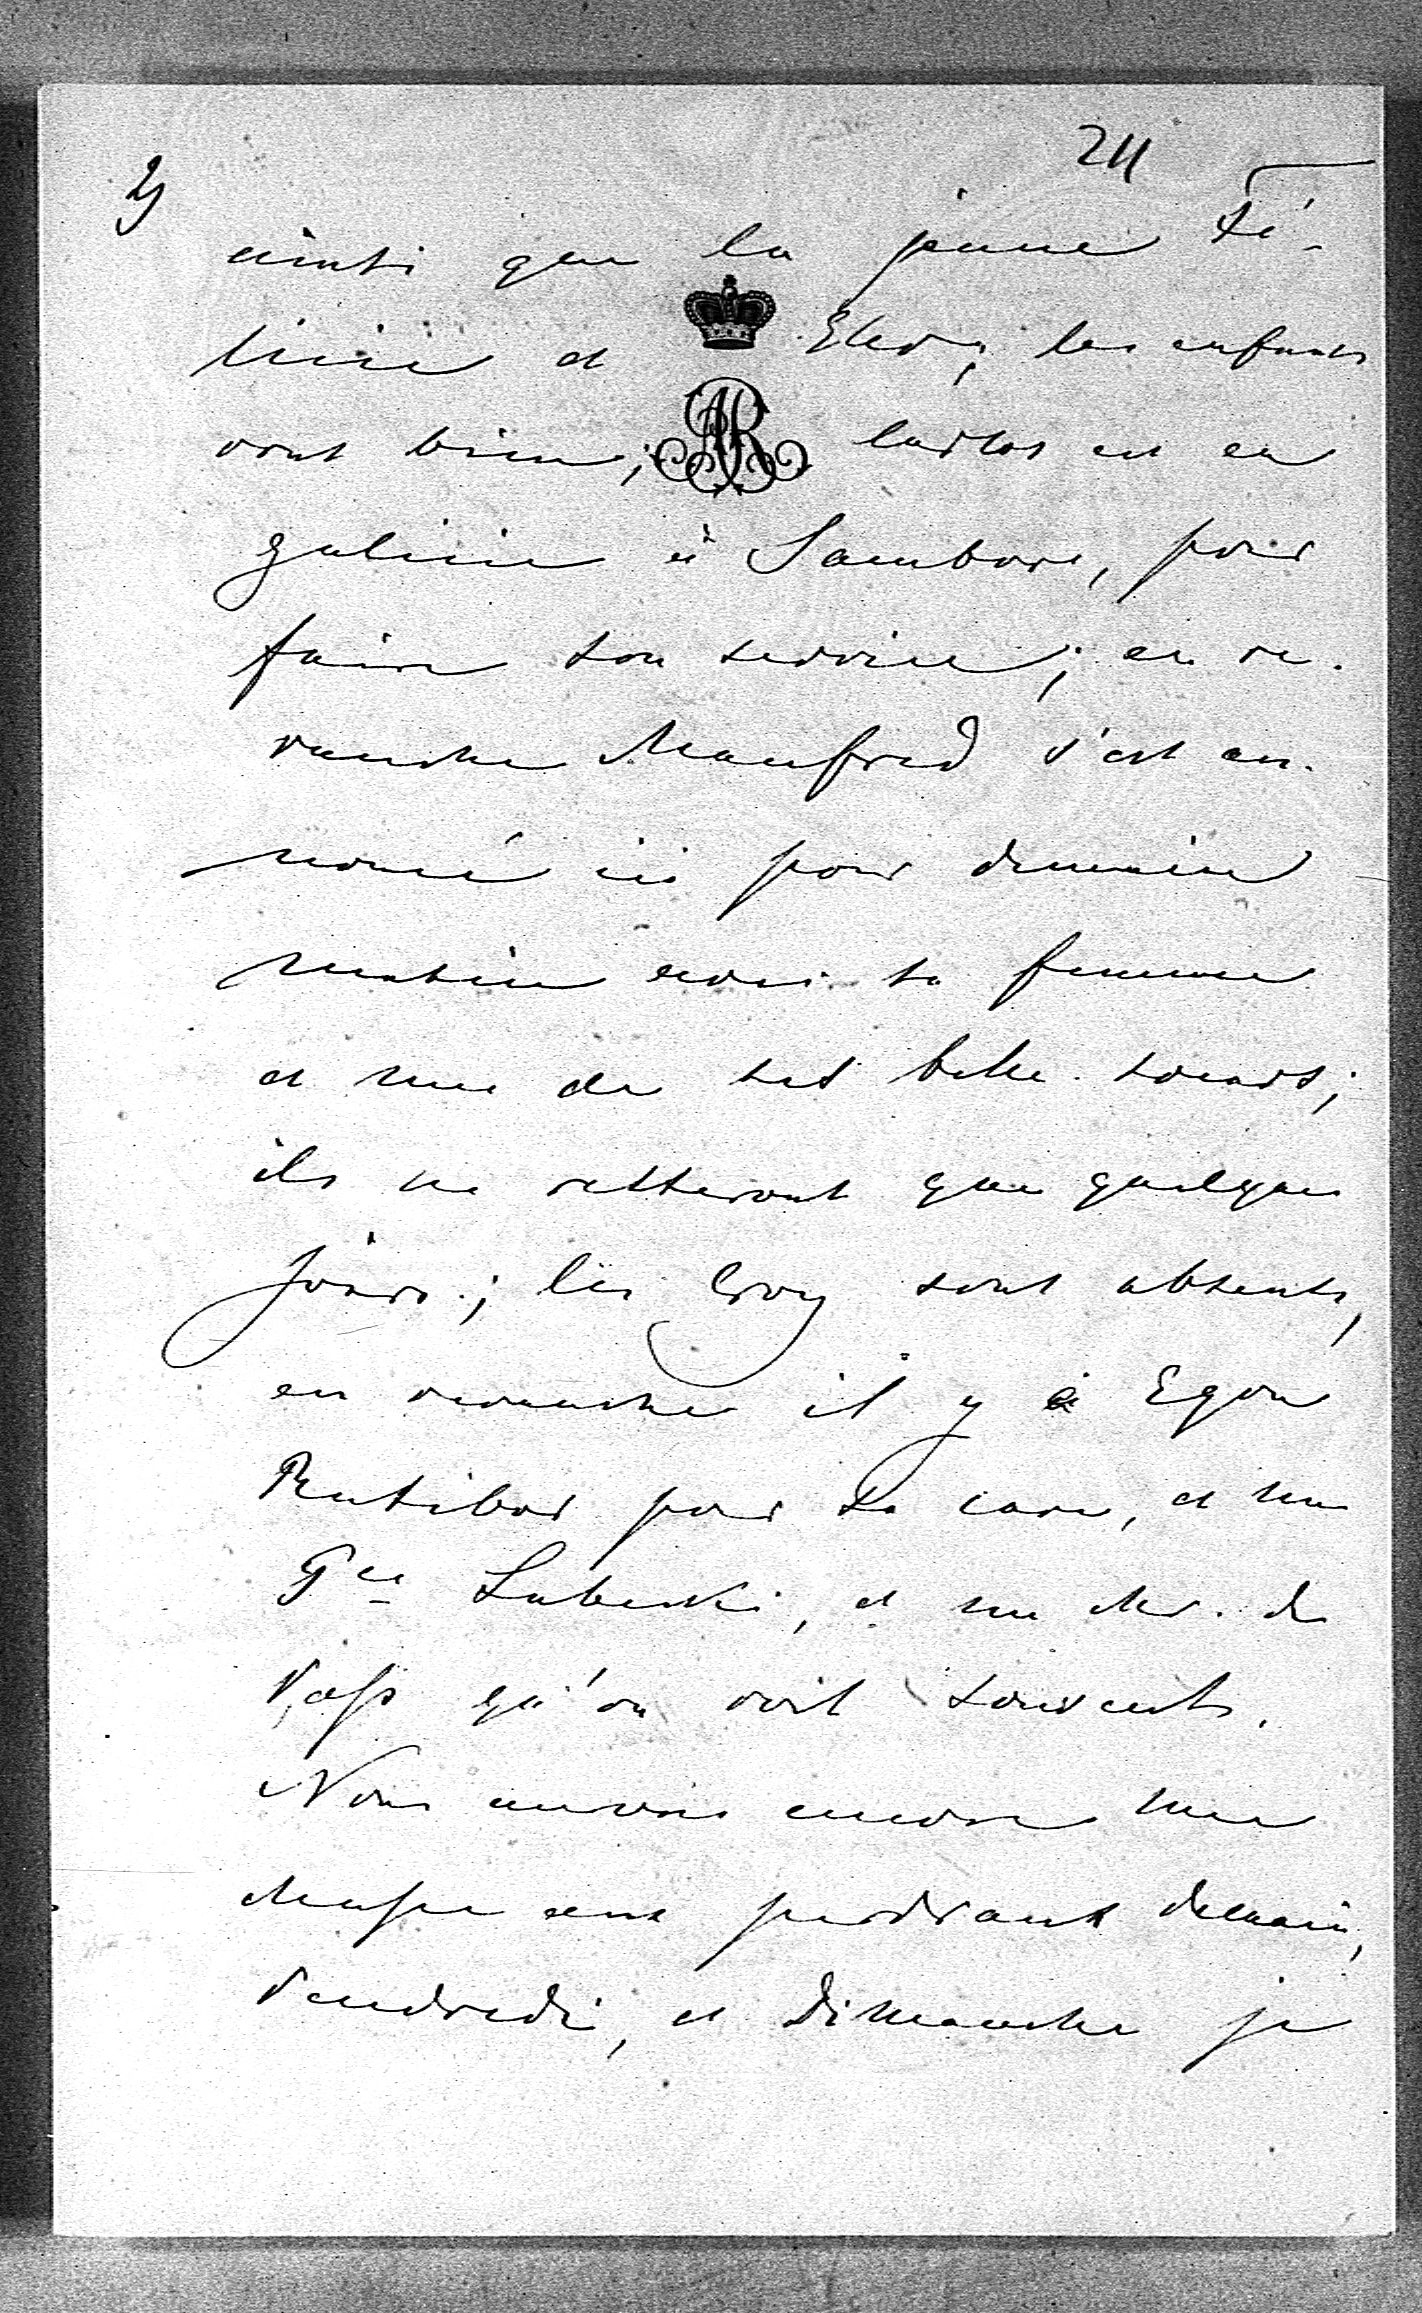 2) 211
ainsi que la jeune Fé-
licie et Eleo; les enfants
vont bien; Carlos est en
galicie à Sambore, pour
faire son service; en re-
vanche Manfred s'est an-
noncé ici pour demain
matin avec sa femme
et une de ses belle-soeurs;
ils ne resteront que quelques
jours; les Croy sont absents,
en revanche il y a Egon
Ratibor pour sa cure, et un
Pce Lubecki, et un Mr. de
qu'on voit souvent.
Nous aurons encore une
chasse aux perdraux demain,
Vendredi, et Dimanche je